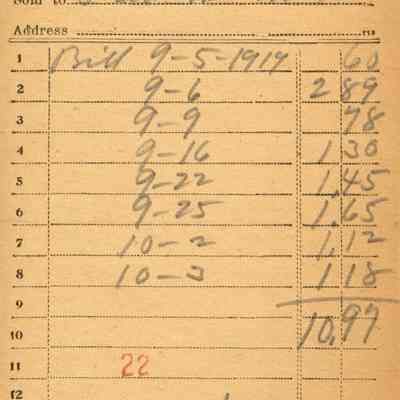 Sold to
Address
1 Bill 9-5-1919 60
2 9-6 2 89
3 9-9 78
4 9-16 1 30
5 9-22 1,45
6 9-25 1,65
7 10-2 1,12
8 10-3 1 18
9
10 10,97
11 22
12